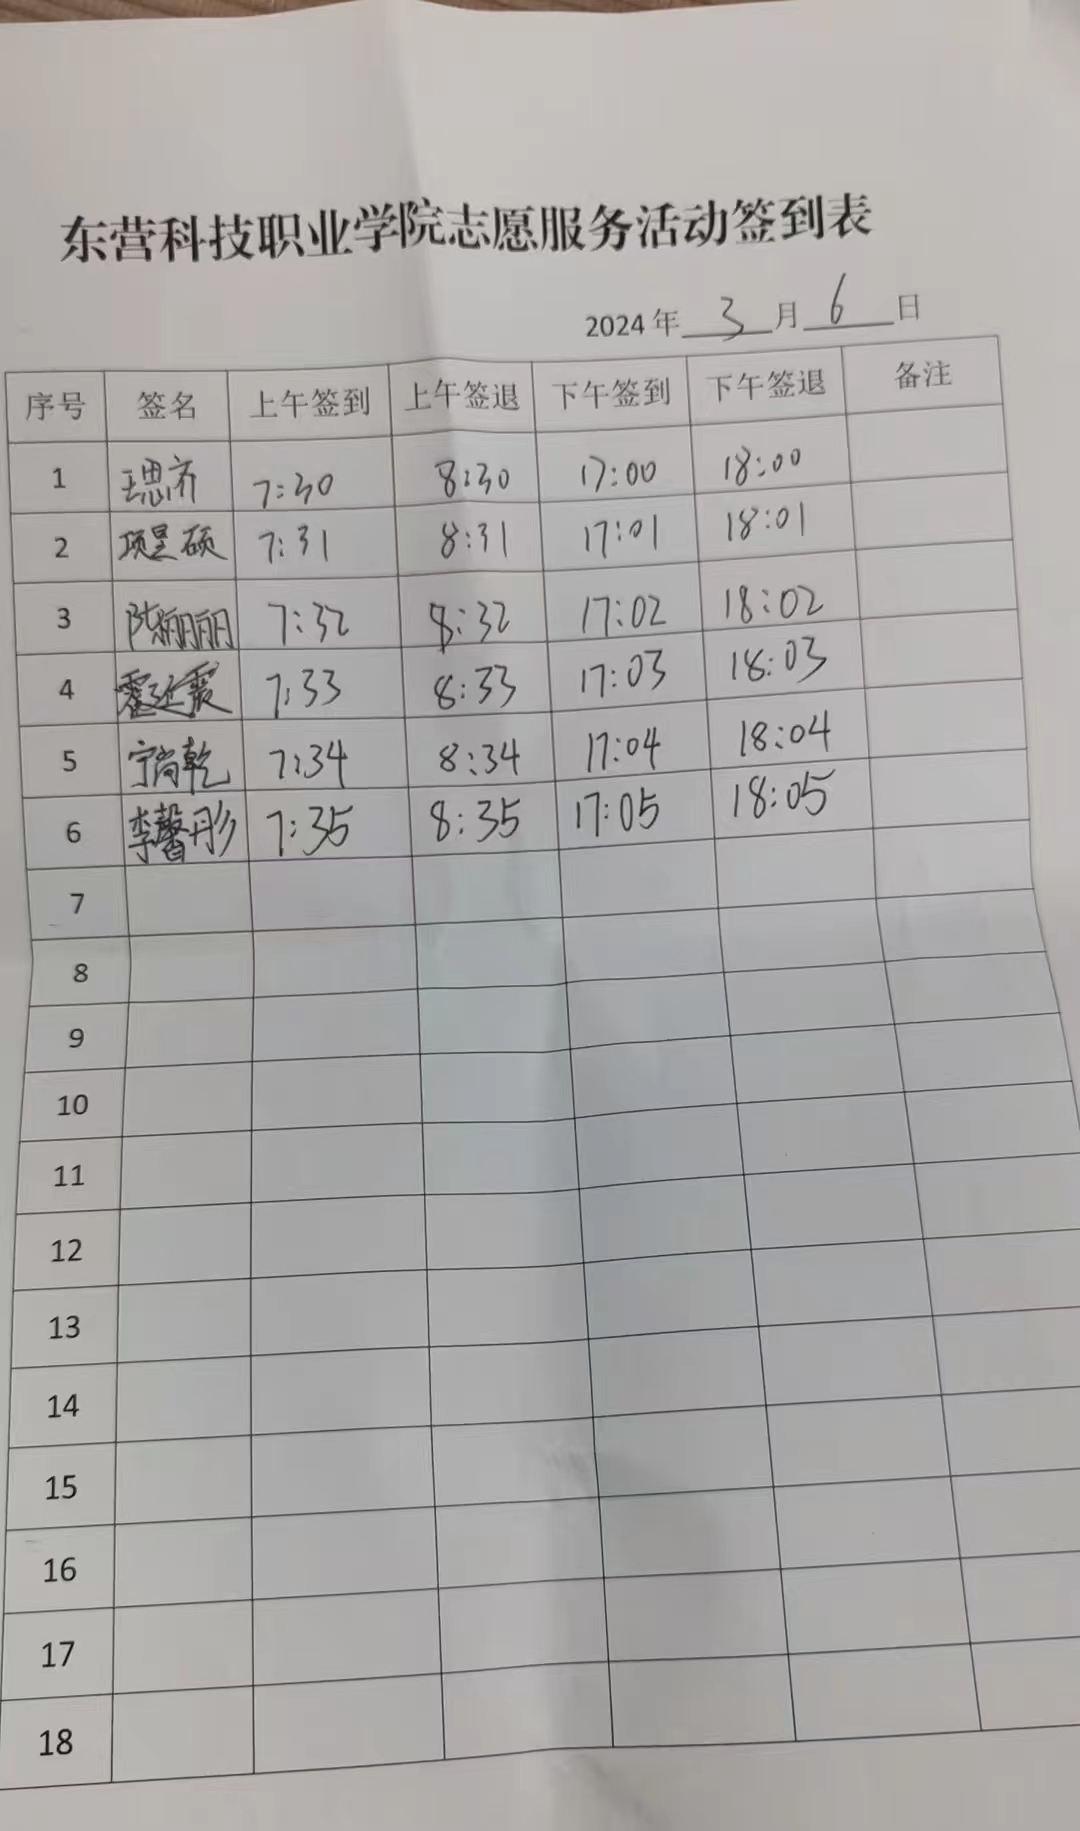 东营科技职业学院志愿服务活动签到表
2024 年 3 月 6 日
序号 签名 上午签到 上午签退 下午签到 下午签退 备注
1 王思齐 7:30 8:30 17:00 18:00
2 项昱硕 7:31 8:31 17:01 18:01
3 陈丽丽 7:32 8:32 17:02 18:02
4 霍延震 7:33 8:33 17:03 18:03
5 宁尚乾 7:34 8:34 17:04 18:04
6 李馨彤 7:35 8:35 17:05 18:05
7
8
9
10
11
12
13
14
15
16
17
18